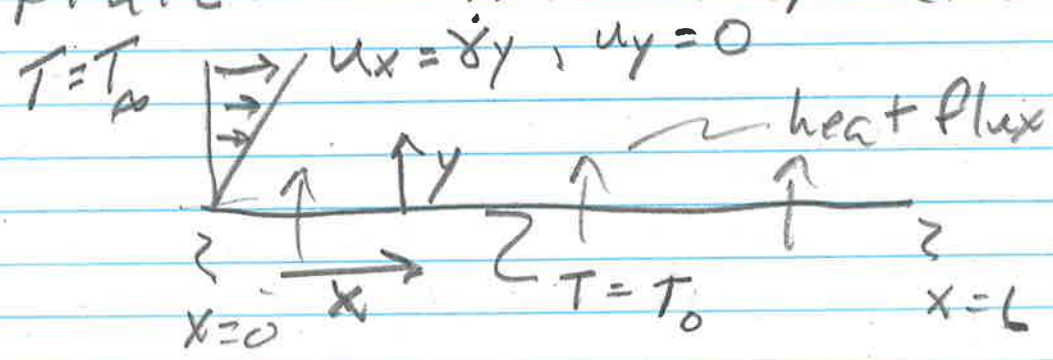 T=T∞ uₓ = γ̇y, u_y = 0
heat flux
y
x T = T₀
x=0 x=L